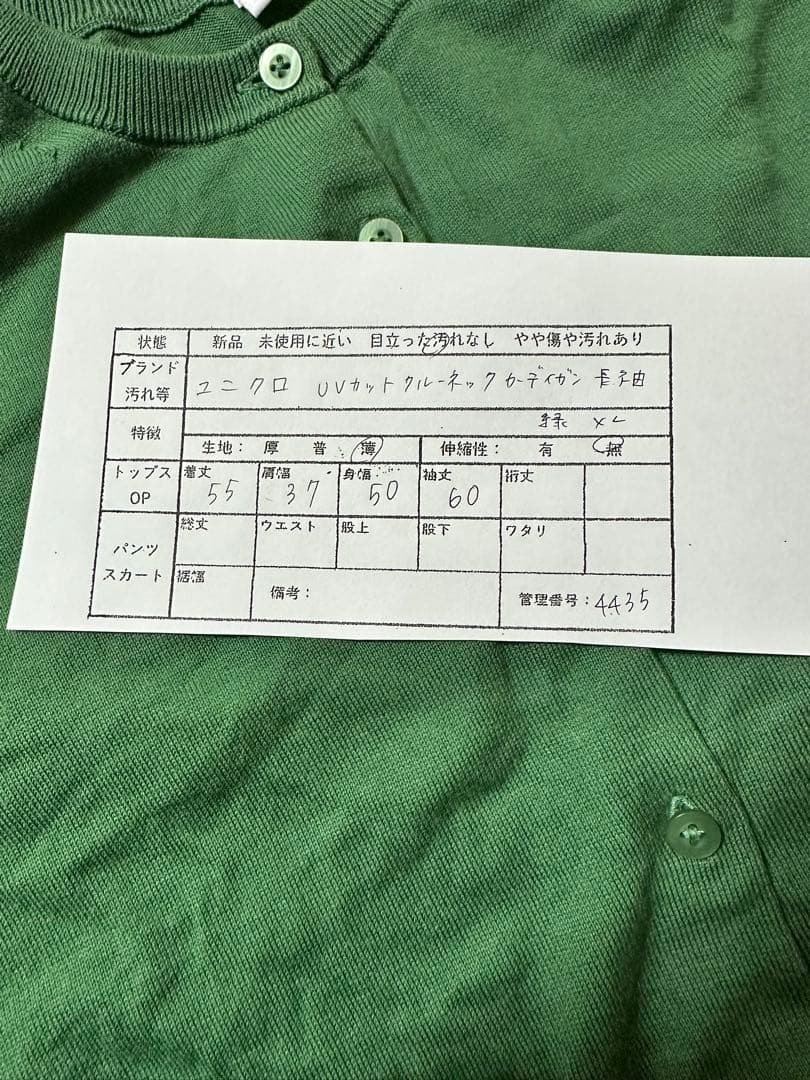 状態 新品 未使用に近い 目立った汚れなし やや傷や汚れあり
ブランド
汚れ等
ユニクロ UVカットクルーネックカーディガン長袖
特徴
緑 XL
生地： 厚 普 薄 伸縮性： 有 無
トップス
OP
着丈 肩幅 身幅 袖丈 裄丈
55 37 50 60
パンツ
スカート
総丈 ウエスト 股上 股下 ワタリ
裾幅 備考： 管理番号：4435